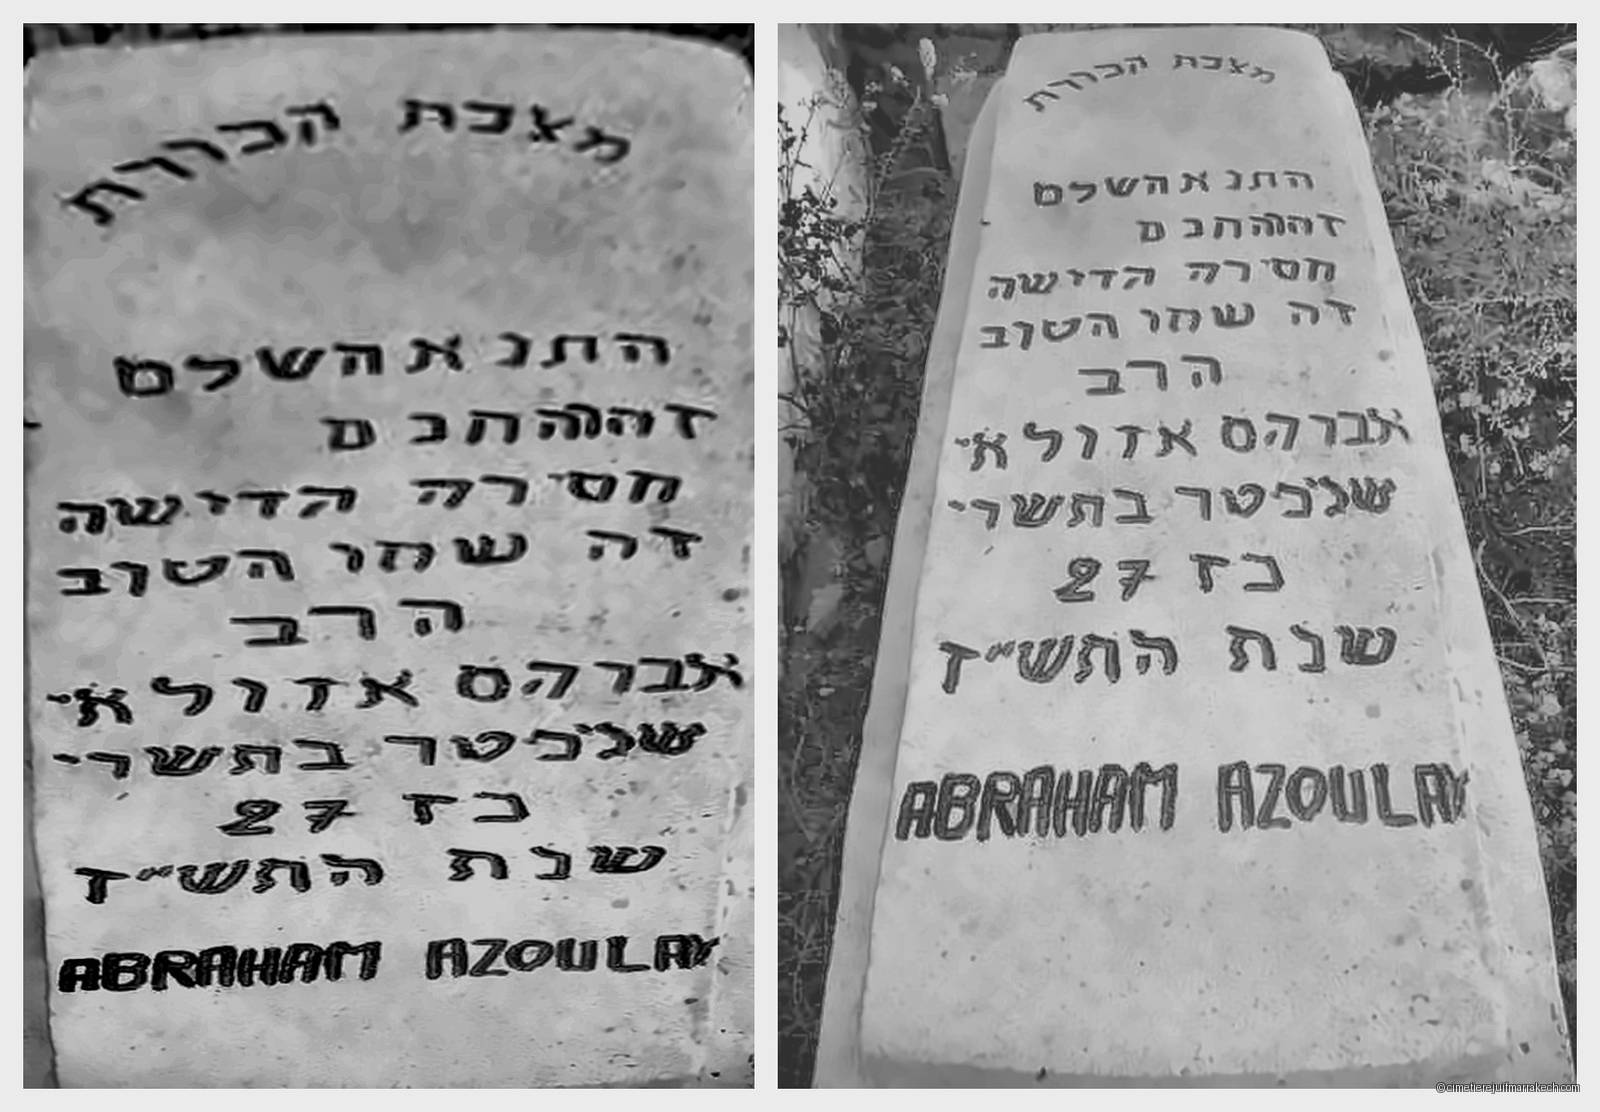 מצבת הבררת
התנא השלם
זההוההחנם
חסירה הדישה
דה שחו הטוב
הרב
אברהם אזולאי
שנכטר בתשרי
כז 27
שנת התש״ז
ABRAHAM AZOULAY
מצבת הבררת
התנא השלם
חסירה הדישה
דה שחו הטוב
הרב
אברהם אזולאי
שנכטר בתשרי
כז 27
שנת התש״ז
ABRAHAM AZOULAY
©cimetierejuifmarrakech.com